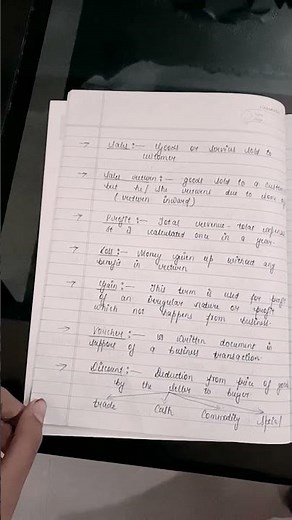 → Sales :- Goods or servies sold to
customer
→ Sales return :- goods sold to a
but he/she returns due to
(return inward)
→ Profit :- Total revenue - total
It is calculated once in a year
→ Loss :- Money given up without any
benefit in return
→ Gain :- This term is used for profit
of an irregular nature or profit
which not happens from
→ Voucher :- A written document in
support of a business transaction
→ Discount :- Deduction from price of
by the seller to buyer
trade Cash Commodity